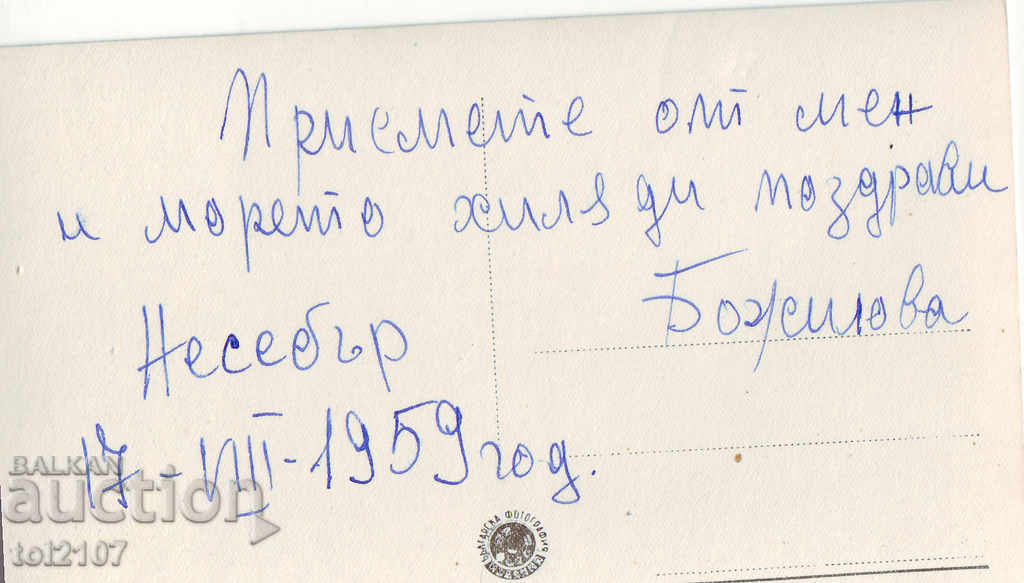 Приемете от мен
и морето хиляди поздрави
Божилова
Несебър
17-VIII-1959 год.
BALKAN
auction
tol2107
БЪЛГАРСКА ФОТОГРАФИЯ